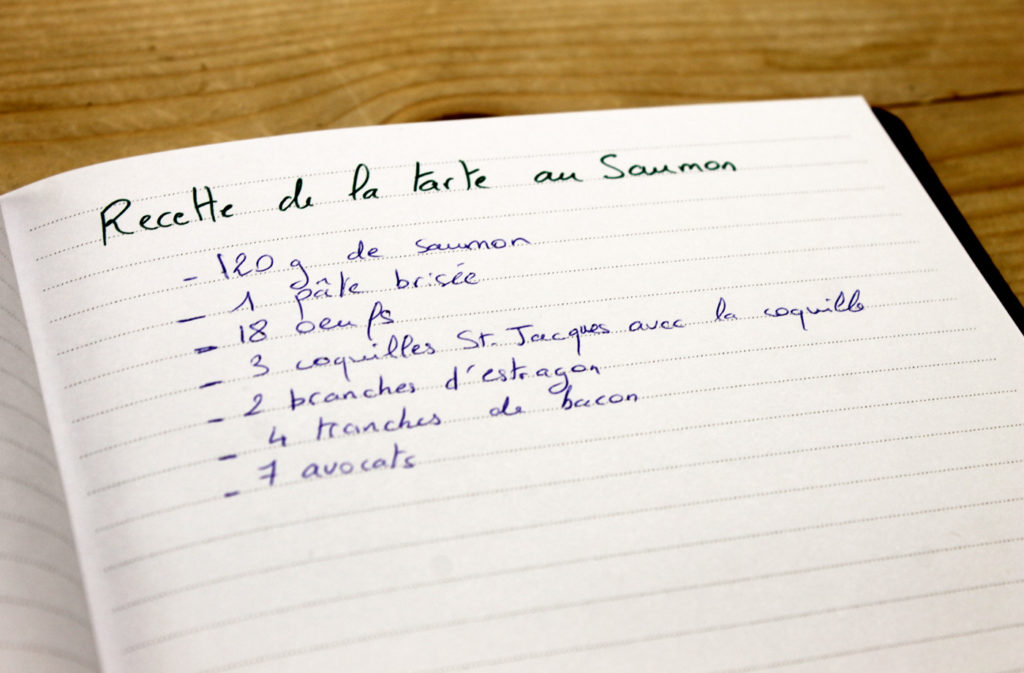 Recette de la tarte au Saumon
- 120 g de saumon
- 1 pâte brisée
- 18 oeufs
- 3 coquilles St. Jacques avec la coquille
- 2 branches d'estragon
- 4 tranches de bacon
- 7 avocats